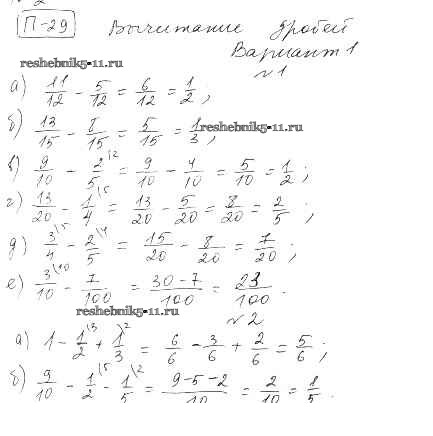 П-29 Вычитание дробей
Вариант 1
reshebnik5-11.ru
№1
а) 11/12 - 5/12 = 6/12 = 1/2;
б) 13/15 - 8/15 = 5/15 = 1/3;
reshebnik5-11.ru
в) 9/10 - 2\2/5 = 9/10 - 4/10 = 5/10 = 1/2;
г) 13/20 - 1\5/4 = 13/20 - 5/20 = 8/20 = 2/5;
д) 3\5/4 - 2\4/5 = 15/20 - 8/20 = 7/20;
е) 3\10/10 - 7/100 = 30-7/100 = 23/100.
reshebnik5-11.ru
№2
а) 1 - 1\3/2 + 1\2/3 = 6/6 - 3/6 + 2/6 = 5/6;
б) 9/10 - 1\5/2 - 1\2/5 = 9-5-2/10 = 2/10 = 1/5.